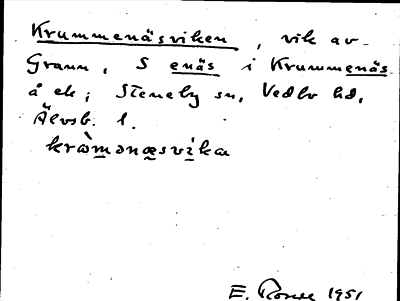 Krummenäsviken, vik av
Grann, S enäs i Krummenäs
å ek; Steneby sn, Vedbo hd,
Älvsb. l.
E. 1951